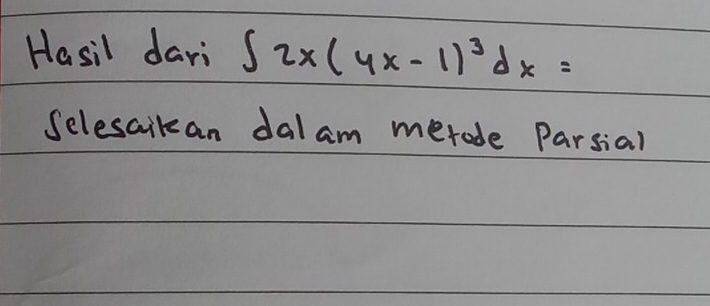 Hasil dari ∫ 2x(4x-1)³dx =
Selesaikan dalam metode Parsial